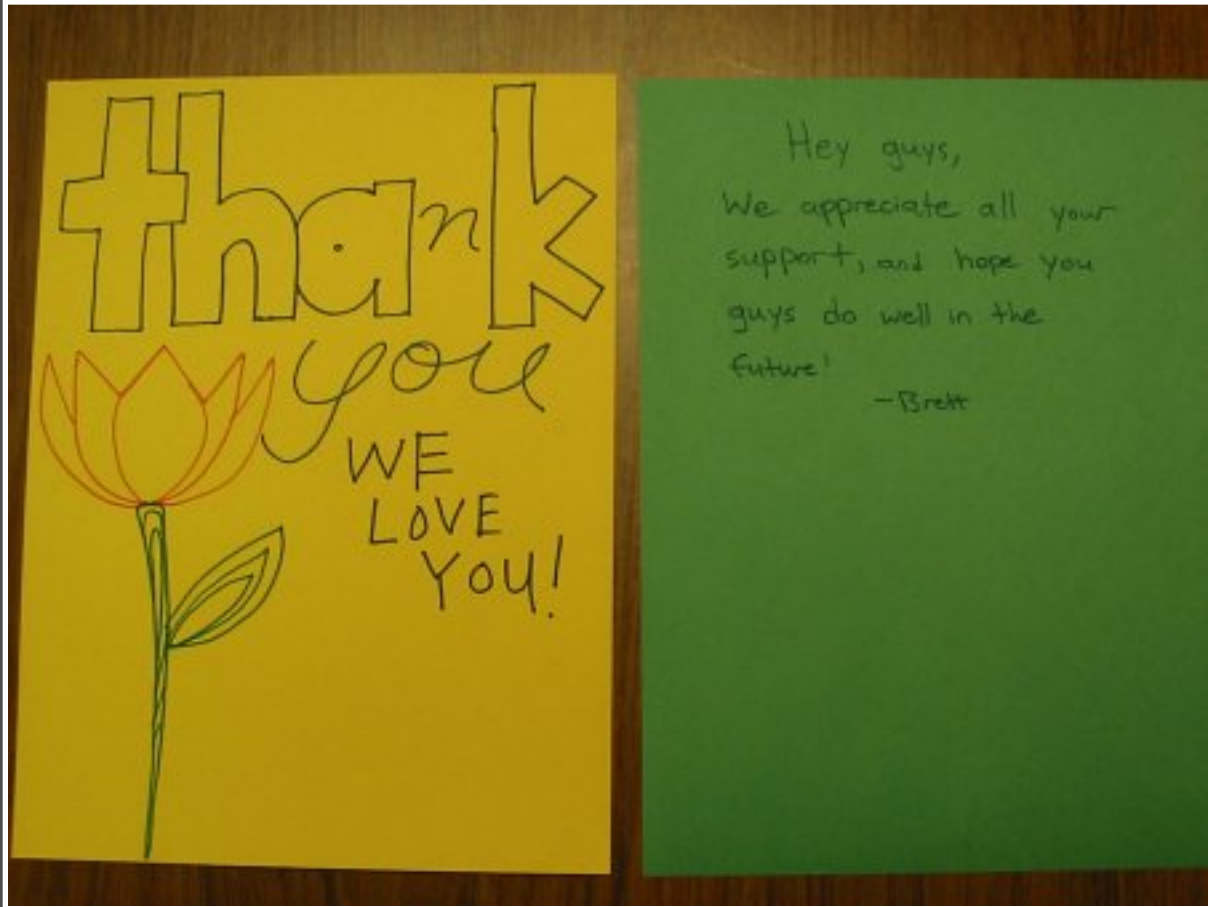 thank
you
WE
LOVE
YOU!
Hey guys,
We appreciate all your
support, and hope you
guys do well in the
future!
-Brett